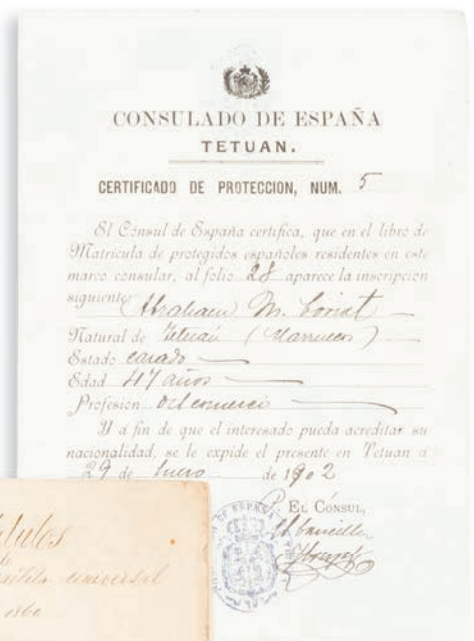 CONSULADO DE ESPAÑA
TETUAN.
CERTIFICADO DE PROTECCION, NUM. 5
El Cónsul de España certifica, que en el libro de
Matrícula de protegidos españoles residentes en este
marco consular, al folio 28 aparece la inscripcion
siguiente: Abraham M. Coriat
Natural de Tetuán (Marruecos)
Estado casado
Edad 47 años
Profesion del comercio
Y a fin de que el interesado pueda acreditar su
nacionalidad, se le expide el presente en Tetuan á
29 de Enero de 1902
EL CONSUL,
El Canciller
universal
1860